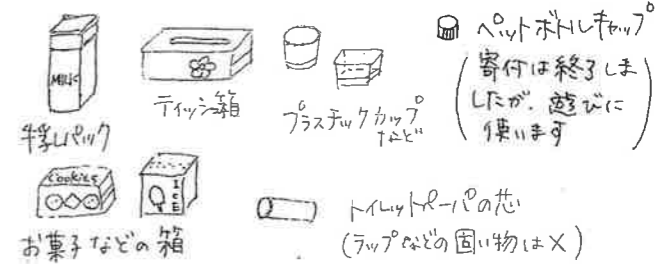 MILK
牛乳パック
ティッシュ箱
プラスチックカップ
など
ペットボトルキャップ
(寄付は終了しま
したが、遊びに
使います)
Cookies
ICE
お菓子などの箱
トイレットペーパの芯
(ラップなどの固い物は×)